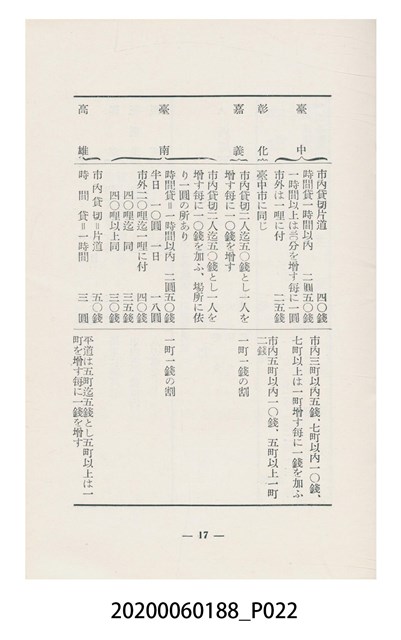 臺中
市內貸切片道 四〇錢
時間貸一時間以內 二圓五〇錢
一時間以上は三分を增す每に一圓
市外は一哩に付 二五錢
市內三町以內五錢、七町以內一〇錢、
七町以上は一町增す每に一錢を加ふ
彰化
臺中市に同じ
市內五町以內一〇錢、五町以上一町
二錢
嘉義
市內貸切二人迄五〇錢とし一人を
增す每に一〇錢を增す
一町一錢の割
臺南
市內貸切二人迄五〇錢とし一人を
增す每に一〇錢を加ふ、場所に依
り一圓の所あり
時間貸=一時間以內 二圓五〇錢
半日 一〇圓 一日 一八圓
市外二〇哩迄一哩に付 四〇錢
四〇哩迄 同 三五錢
四〇哩以上同 三〇錢
一町一錢の割
高雄
市內貸切=片道 五〇錢
時間貸=一時間 三圓
平道は五町迄五錢とし五町以上は一
町を增す每に一錢を增す
— 17 —
20200060188_P022